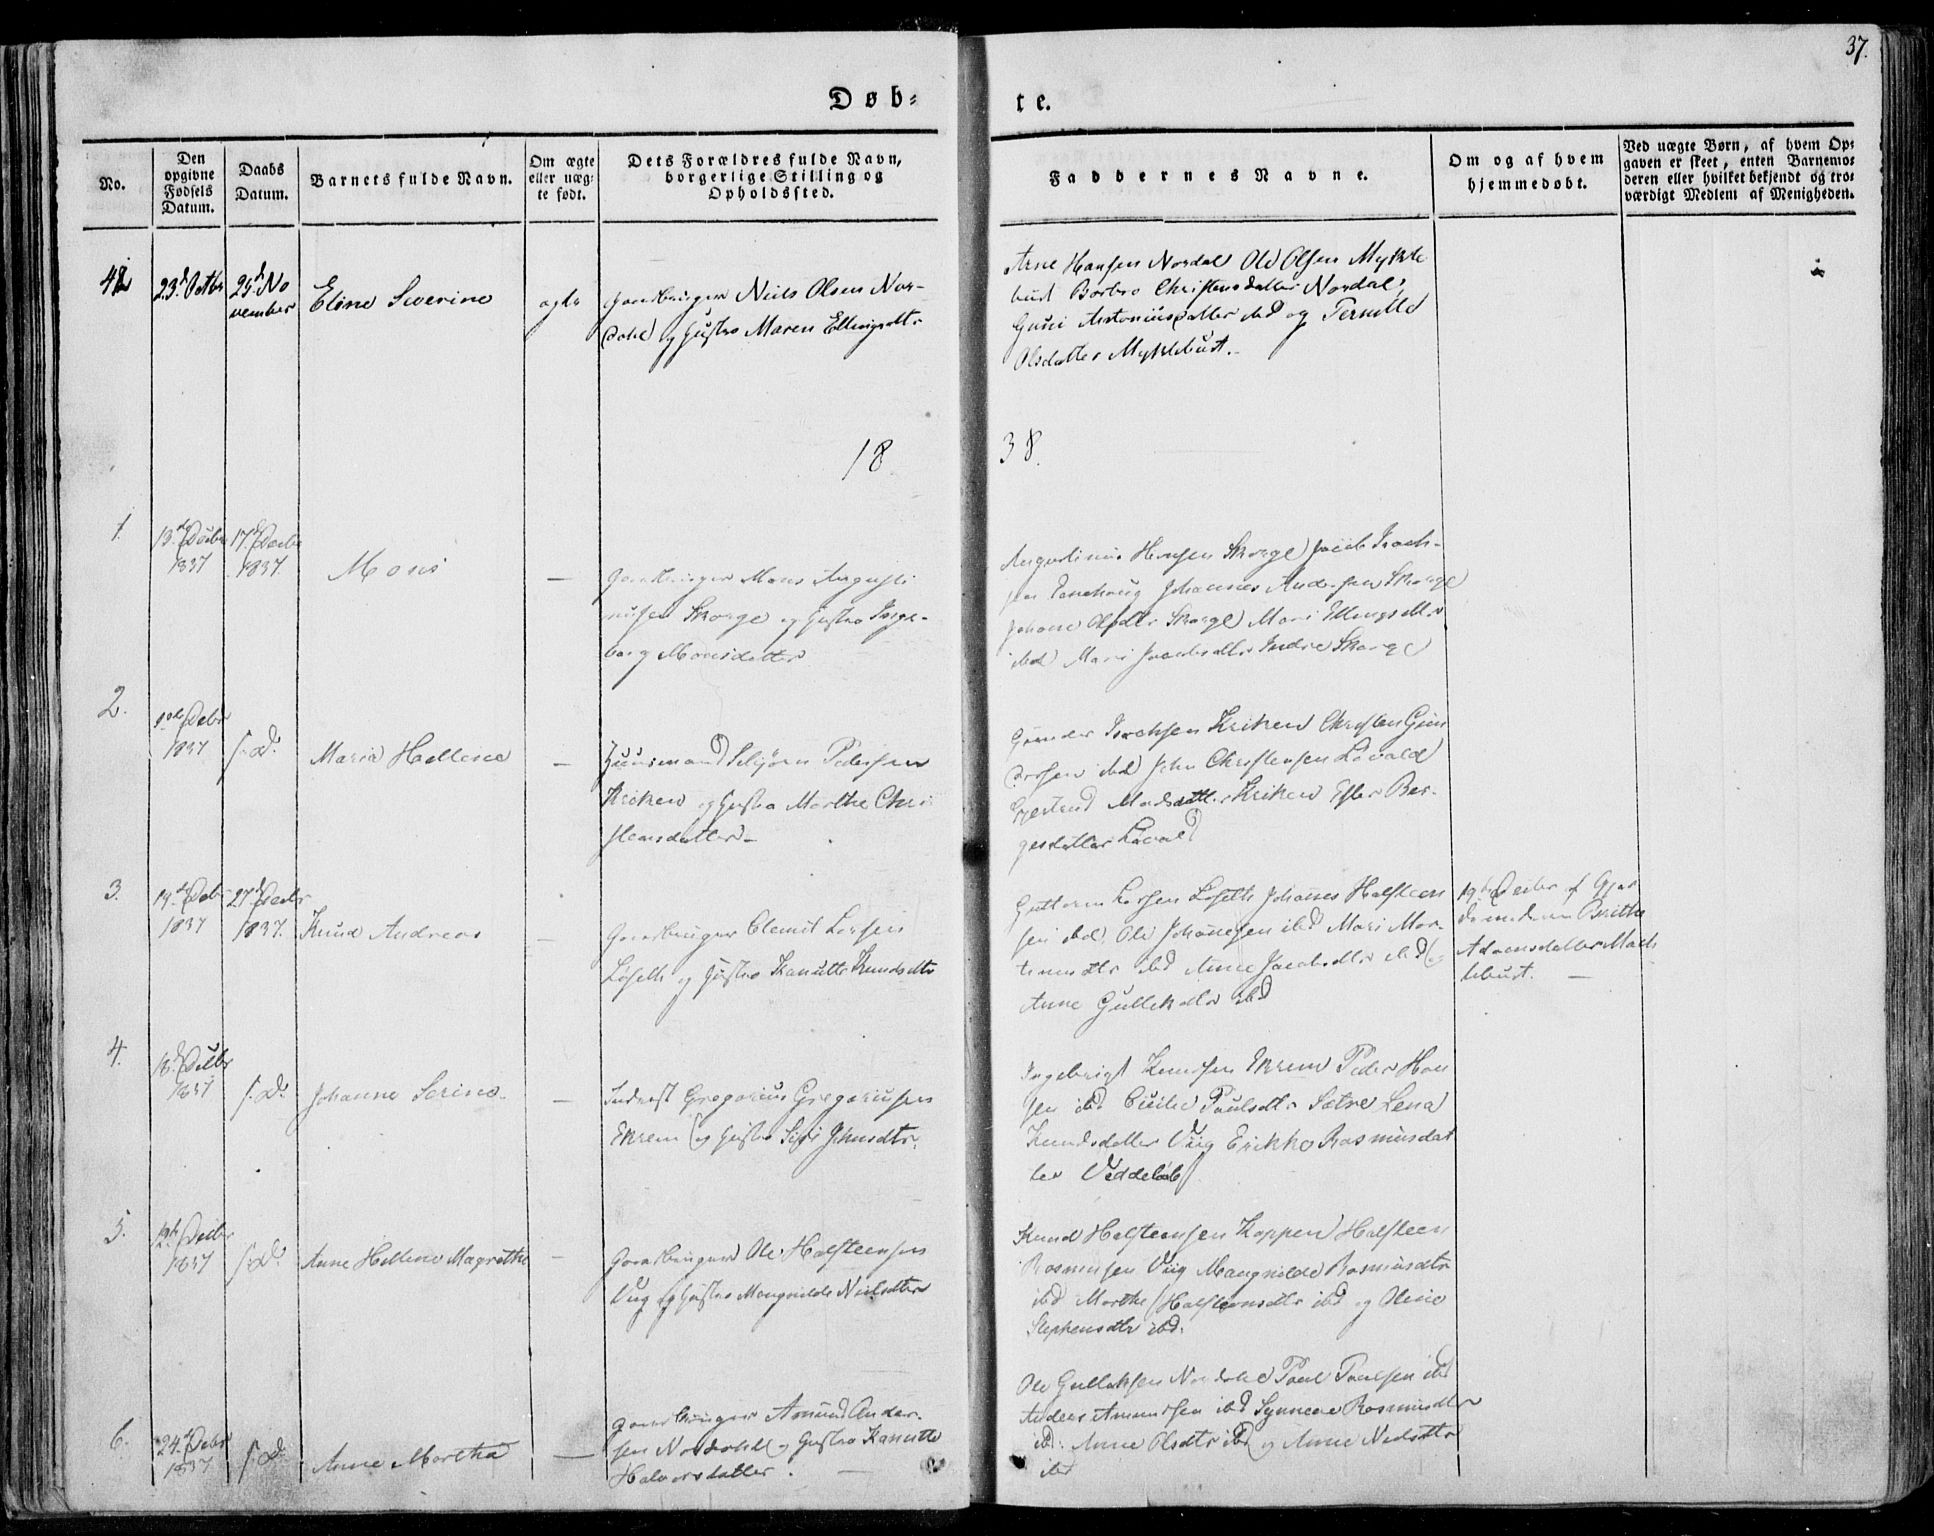 37.
Døb-
te.
No.
Den
opgivne
Fødsels
Datum.
Daabs
Datum.
Barnets fulde Navn.
Om ægte
eller uæg-
te født.
Dets Forældres fulde Navn,
borgerlige Stilling og
Opholdssted.
Faddernes Navne.
Om og af hvem
hjemmedøbt.
Ved uægte Børn, af hvem Op-
gaven er skeet, enten Barnemo-
deren eller hvilket bekjendt og tro-
værdigt Medlem af Menigheden.
23d Octbr
25d No
vember
Eline Severine
ægte
Gaardbruger Niels Olsen Nor-
dahl og Hustro Maren Ellingsdtr
Arne Hansen Nordal Ole Olsen Mykle
bust Barbro Christensdatter Nordal,
Guni Antoniusdatter ibd og Pernille
Olsdatter Myklebust.
18
38.
1.
13d Decbr
1837
17d Decbr
1837.
Mons
—
Gaardbruger Mons Augusti
nusen Skorge og Hustro Inge-
borg Monsdatter
Augustinus Hansen Skorge Jacob Isach-
sen Johannes Andersen Skorge
Johane Olsdtr Skorge Mari Ellingsdtr
ibd Mari Jacobsdtr Indre Skorge
2.
Decbr
1837
s. D.
Maria Hellene
—
Huusmand Peder­sen
Kriken og Hustro Marthe Chri
stensdatter
Gunder Isachsen Kriken Christen Gun
dersen ibd John Christensen Løvold
Gjertrud Madsdatter Kriken Ester Ber-
gesdatter Løvold
3.
14d Decbr
1837
27d Decbr
1837.
Knud Andreas
—
Gaardbruger Clemit Larsen
Løseth og Hustro Kanutte Knudsdtr
Guttorm Larsen Løseth Johanes Halsteen
sen ibd. Ole Johannesen ibd Mari Mor-
tensdtr ibd Anne Jacobsdtr ibd
Anne Gulleksdtr ibd
19d Decbr af Gjor
demoderen Berithe
Adamsdatter Mach
lebust. —
4.
18d Decbr
1837
s. D.
Johanne Serine
—
Inderst Gregorius Gregoriusen
Ekrem og Hustro Siri Johnsdtr.
Ingebrigt Knudsen Ekrem Peder Han
sen ibd Cicilie Paulsdtr Sætre Lena
Knudsdatter Viig Erikke Rasmusdat
ter Veddeløb
5.
Decbr
1837
s. D.
Anne Hellene Magrethe
—
Gaardbruger Ole Halsteensen
Viig og Hustro Mangnilde Nielsdtr
Knud Halsteensen Koppen Halsteen
Rasmusen Viig Mangnilde Rasmusdtr
ibd Marthe Halsteensdtr ibd og Oline
Stephensdtr ibd.
6.
24d Decbr
1837
s. D.
Anne Martha
—
Gaardbruger Amund Ander-
sen Nordahl og Hustro Kanutte
Halvorsdatter. —
Ole Gulleksen Nordal Paul Paulsen ibd
Anders Amundsen ibd Synneve Rasmusdtr
ibd. Anne Olsdtr ibd og Anne Nielsdtr
ibd